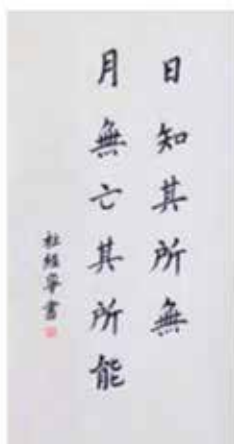 日知其所無
月無亡其所能
杜維寧書